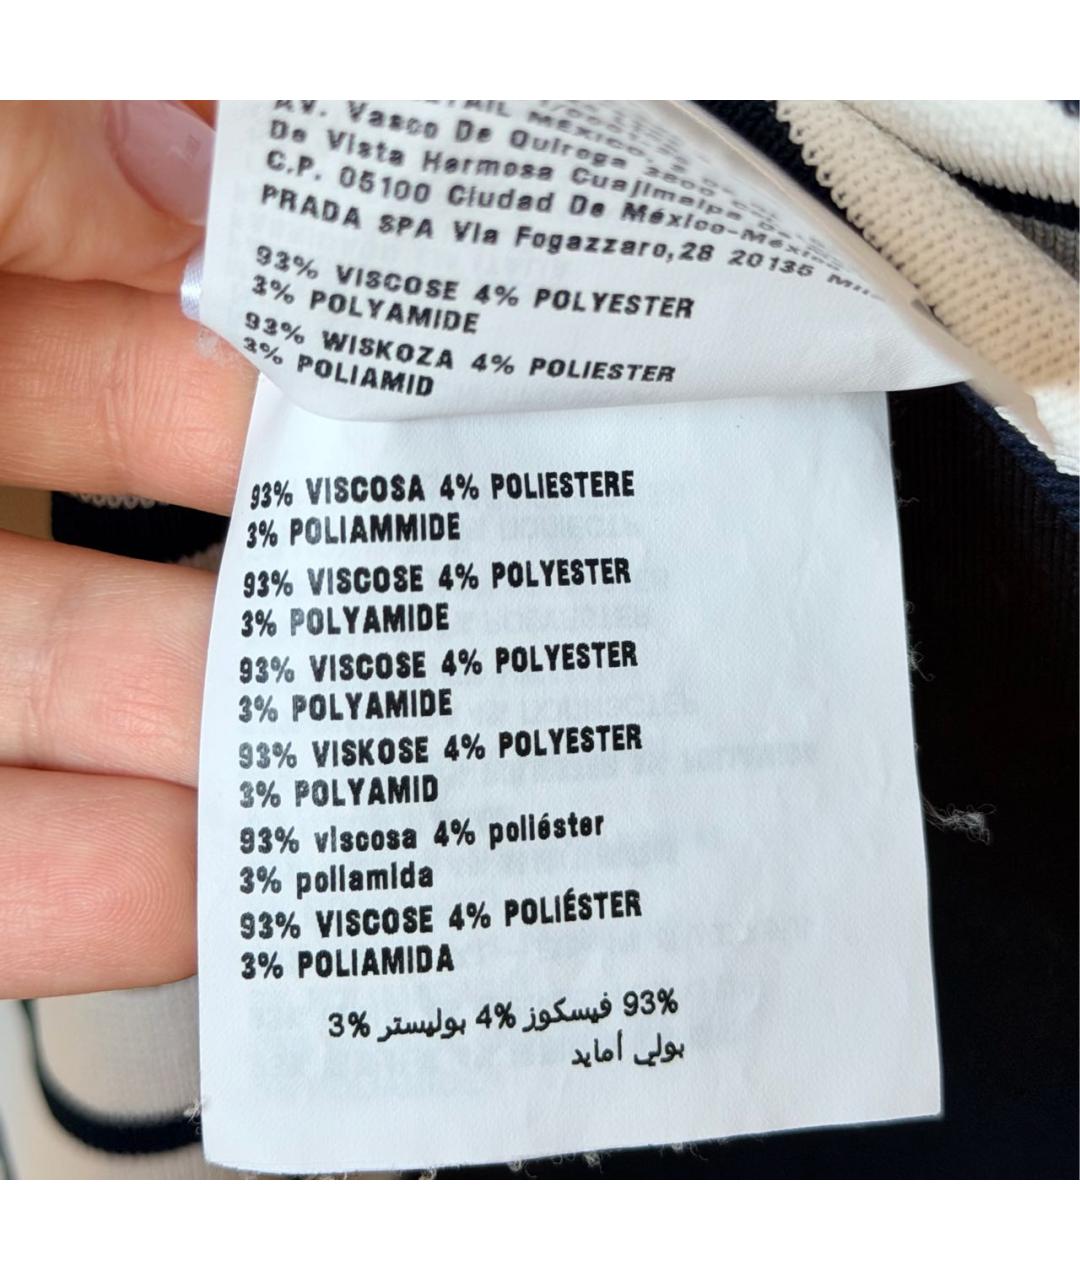 AV. Vasco De Quiroga 3800
De Vista Hermosa Cuajimalpa De
C.P. 05100 Ciudad De México-México
PRADA SPA Via Fogazzaro,28 20135
93% VISCOSE 4% POLYESTER
3% POLYAMIDE
93% WISKOZA 4% POLIESTER
3% POLIAMID
93% VISCOSA 4% POLIESTERE
3% POLIAMMIDE
93% VISCOSE 4% POLYESTER
3% POLYAMIDE
93% VISCOSE 4% POLYESTER
3% POLYAMIDE
93% VISKOSE 4% POLYESTER
3% POLYAMID
93% viscosa 4% poliéster
3% poliamida
93% VISCOSE 4% POLIÉSTER
3% POLIAMIDA
93% فيسكوز 4% بوليستر 3%
بولي أمايد